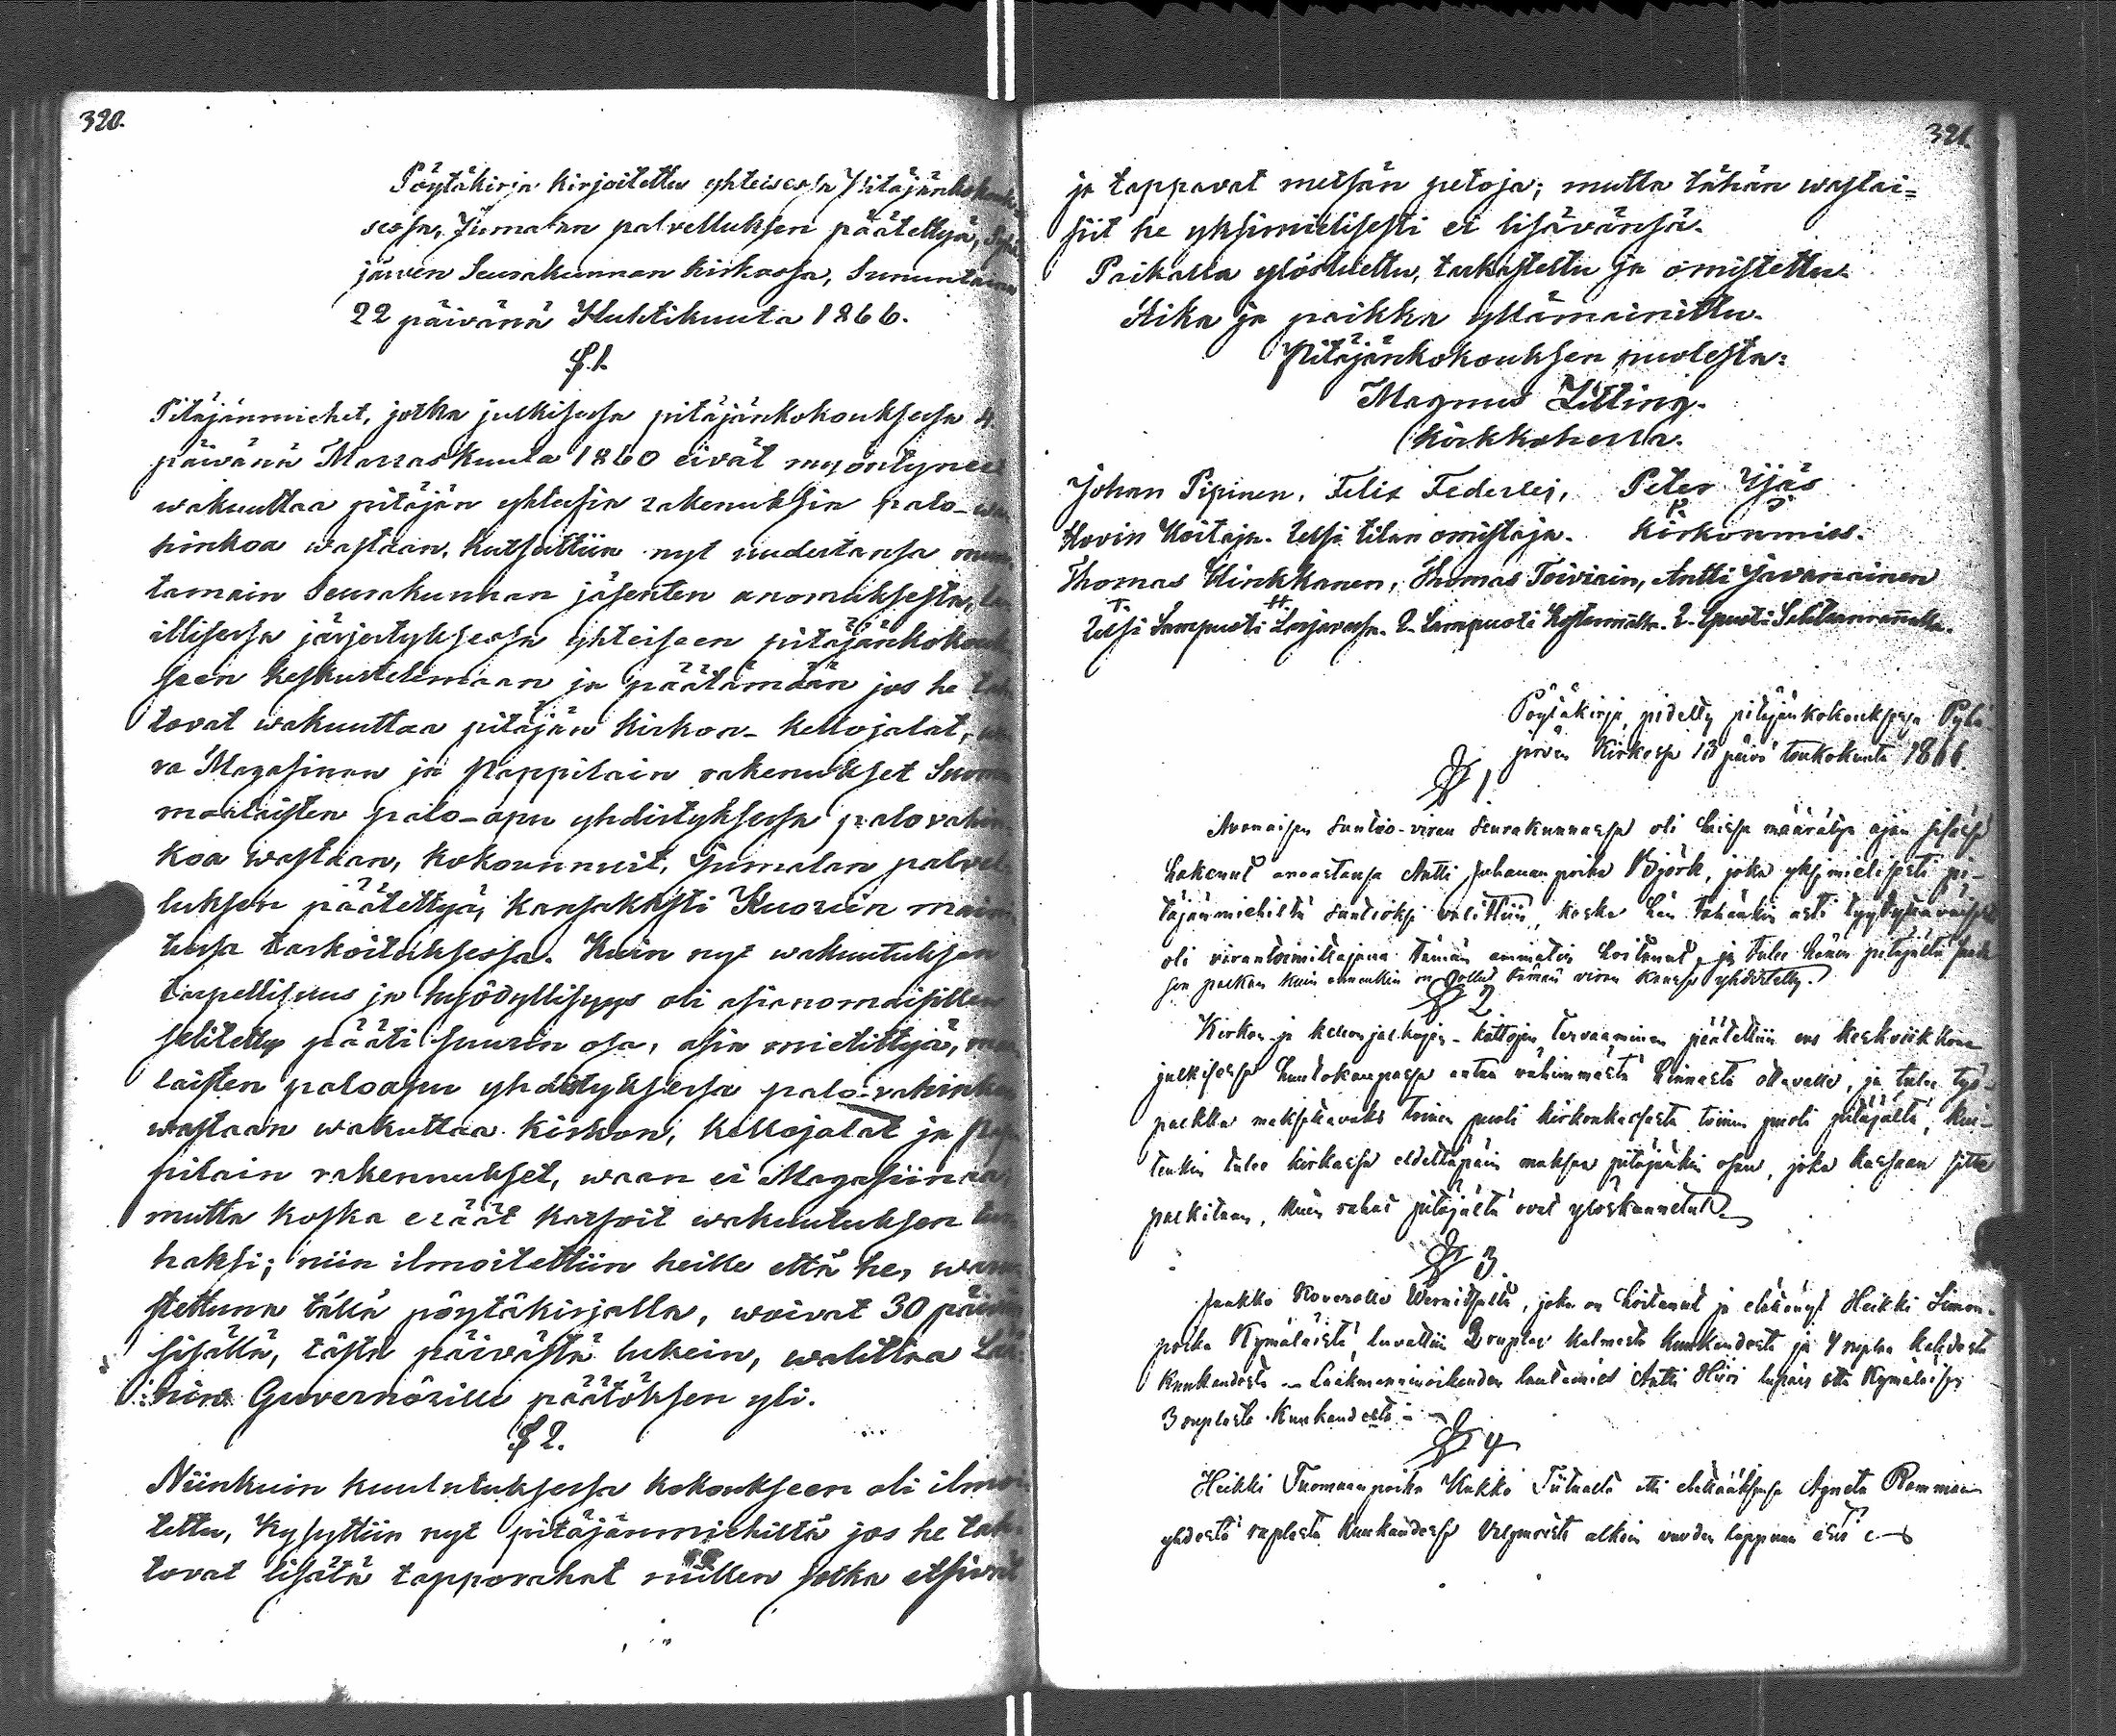 320.
Pöytäkirja kirjoitettu yhteisessä Pitäjänkokouk=
sessa, Jumalan palvelluksen päätettyä, Pyhä=
järwen Seurakunnan kirkossa, Sununtaina
22 päivänä Huhtikuuta 1866.
§.1.
Pitäjänmiehet, jotka julkisessa pitäjänkokouksessa 4
päivänä Marraskuuta 1860 eivät myöntyneet
wakuuttaa pitäjän yhteisiä rakenuksia palo-wa
hinkoa wastaan, kutsuttiin nyt uudestansa muu
tamain Seurakunnan jäsenten anomuksesta, la
illisessa järjestyksessä yhteiseen pitäjänkokouk
seen keskustelemaan ja päätämään jos he tah
tovat wakuuttaa pitäjän kirkon- kellojalat,
ra Magasinan ja Pappilain rakenukset Suome
maalaisten palo-apu yhdistyksessä palovahin
koa wastaan, kokounnuit, Jumalan palvel
luksen päätettyä, kansakästi Kuoriin maini
tussa tarkoituksessa. Kuin nyt wakuutuksen
tarpellisuus ja hyödyllisyys oli asianomaisillen
selitetty pääti suurin osa, asia mietittyä, maa
laisten paloapu yhdistyksessä palo-vahinkoa
wastaan wakuttaa kirkon, Kellojalat ja Pap
pilain rakennukset, waan ei Magasiinaa,
mutta koska eräät katsoit wakuutuksen tur
haksi; niin ilmoitettiin heille että he, waru
stettuna tällä pöytäkirjalla, woivat 30 päivän
sisällä, tästä päivästä lukein, walittaa Lää=
nin Guvernörille päätöksen yli.
§ 2.
Niinkuin kuulutuksessa kokoukseen oli ilmoi
tettu, kysyttiin nyt pitäjänmiehiltä jos he tah
tovat lisätä tapporahat niillen jotka etsivät
321.
ja tappavat metsän petoja; mutta tähän wastai=
siit he yksimielisesti ei lisävänsä.
Paikalla ylösluettu, tarkastettu ja omistettu.
Aika ja paikka yllämainittu.
Pitäjänkokouksen puolesta:
Magnus Zitting.
kirkkoherra.
Johan Pipinen, Felix Federlej, Peter Yjäs
Hovin Hoitaja. Uetsi tilan omistaja. Kirkonmies.
Thomas Hinkkanen, Thomas Toiviain, Antti Javanainen
Pöytäkirja, pidetty pitäjänkokouksessa Pyhä
järven Kirkossa 13 päivä toukokuuta 1866.
§ 1
Avonaisen suntio-viran seurakunnassa oli laissa määrätyn ajan sisässä
hakenut ainoastansa Antti Juhananpoika Björk, joka yksimielisesti pi-
täjänmiehiltä suntioksi valittiin, koska hän tähänkin asti tyydyttäväisesti
oli virantoimittajana tämän ammatin hoitanut, ja tulee hänen pitäjältä saada
sen palkan kuin ennenkin on ollut tämän viran kanssa yhdistetty.
§ 2
Kirkon ja kellonjalkojen kattojen tervaaminen päätettiin ens keskviikkona
julkisessa huutokaupassa antaa vähimmästä hinnasta ottavalle, ja tulee työ-
palkka maksettavaks toinen puoli kirkonkassasta toinen puoli pitäjältä, kui-
tenkin tulee kirkassa edeltäpäin maksaa pitäjänkin osan, joka kassaan sitte
palkitaan, kuin rahat pitäjältä ovat ylöskannetut
§ 3
Jaakko Koverolle Wernitsalta, joka on hoitanut ja elättänyt Heikki Simon-
poika Kymäläistä, luvattiin 2 ruplaa kolmesta kuukaudesta ja 4 ruplaa kahdesta
kuukaudesta – Laakmanninoikeuden lautamies Antti Hiiri lupais otta Kymäläisen
3 ruplasta kuukaudesta –
§ 4
Heikki Tuomaanpoika Kukko Tiitualta otti elättääksensä Agneta Rommin
yhdestä ruplasta kuukaudessa Valpurista alkain vuoden loppuun asti